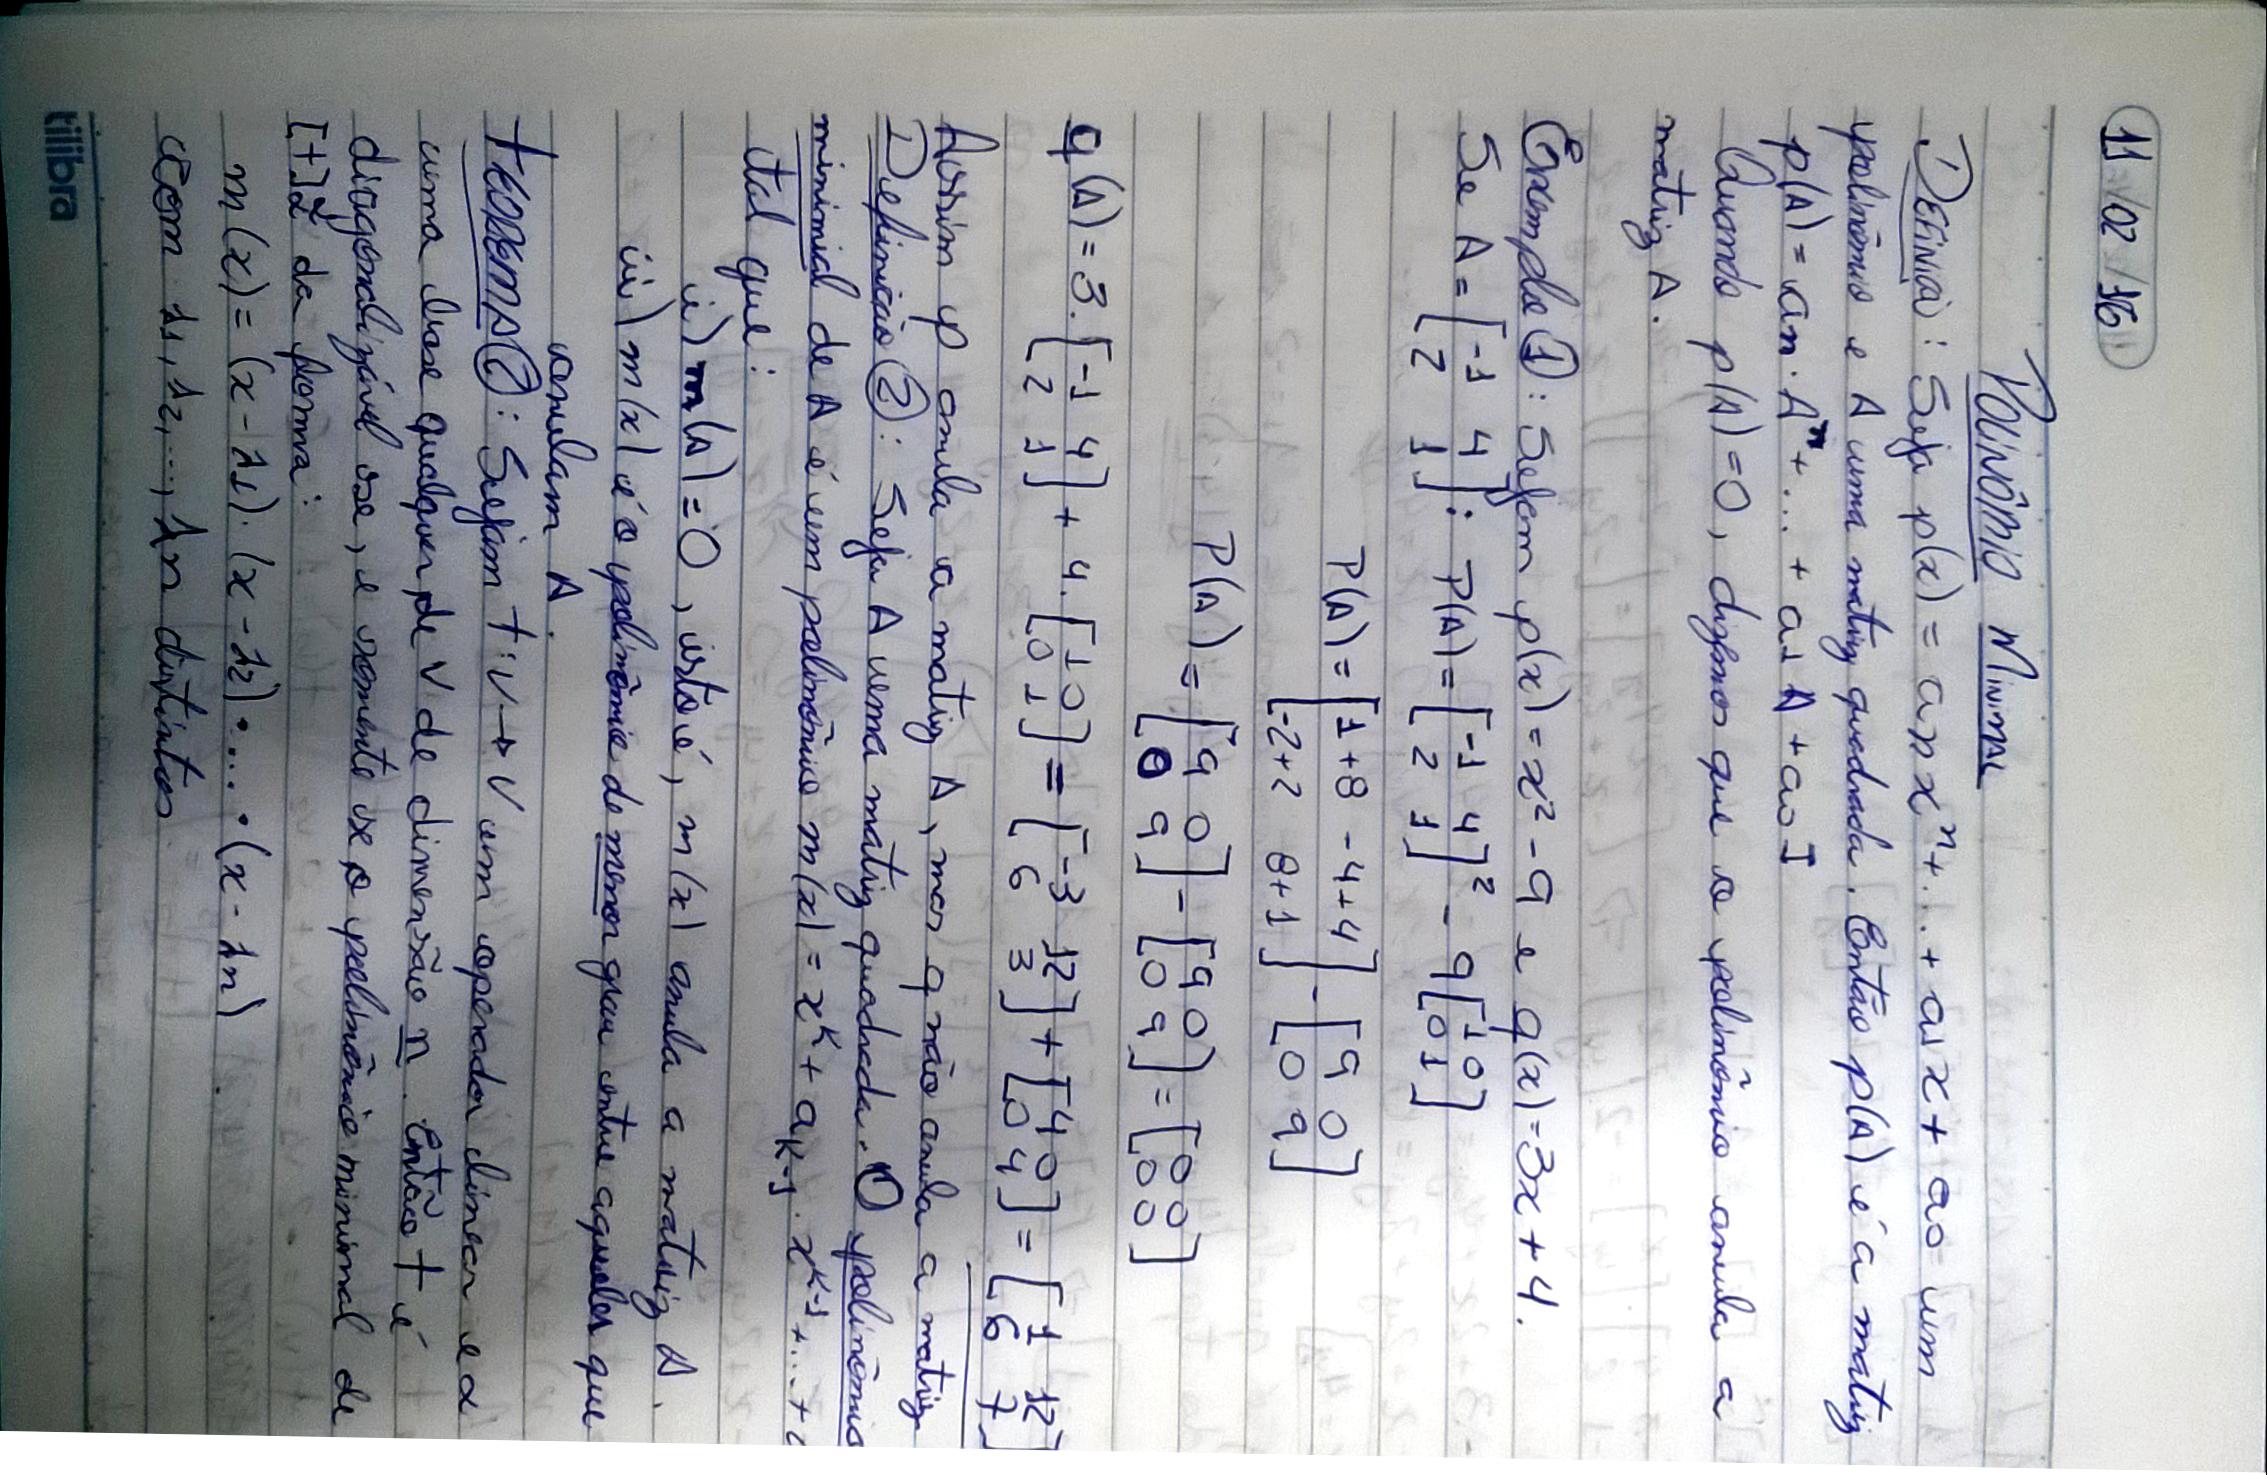 11/02/16
POLINÔMIO MINIMAL
DEFINIÇÃO: Seja p(x) = anxⁿ + ... + a1x + a0 um
polinômio e A uma matriz quadrada. Então p(A) é a matriz
p(A) = an · Aⁿ + ... + a1 A + a0 I
Quando p(A) = 0, dizemos que o polinômio anula a
matriz A.
Exemplo ①: Sejam p(x) = x² - 9 e q(x) = 3x + 4.
Se A = [-1 4; 2 1]: P(A) = [-1 4; 2 1]² - 9[1 0; 0 1]
P(A) = [1+8 -4+4; -2+2 8+1] - [9 0; 0 9]
P(A) = [9 0; 0 9] - [9 0; 0 9] = [0 0; 0 0]
q(A) = 3. [-1 4; 2 1] + 4. [1 0; 0 1] = [-3 12; 6 3] + [4 0; 0 4] = [1 12; 6 7]
Assim p anula a matriz A, mas q não anula a matriz
Definição ②: Seja A uma matriz quadrada. O polinômio
minimial de A é um polinômio m(x) = xᴷ + a_{K-1} · x^{K-1} + ... +
tal que:
i) m(A) = 0, isto é, m(x) anula a matriz A.
ii) m(x) é o polinômio de menor grau entre aqueles que
anulam A.
TEOREMA ②: Sejam T: V → V um operador linear e α
uma base qualquer de V de dimensão n. Então T é
diagonalizável se, e somente se o polinômio minimal de
[T]α/α da forma:
m(x) = (x - λ1) · (x - λ2) · ... · (x - λn)
com λ1, λ2, ..., λn distintos
tilibra